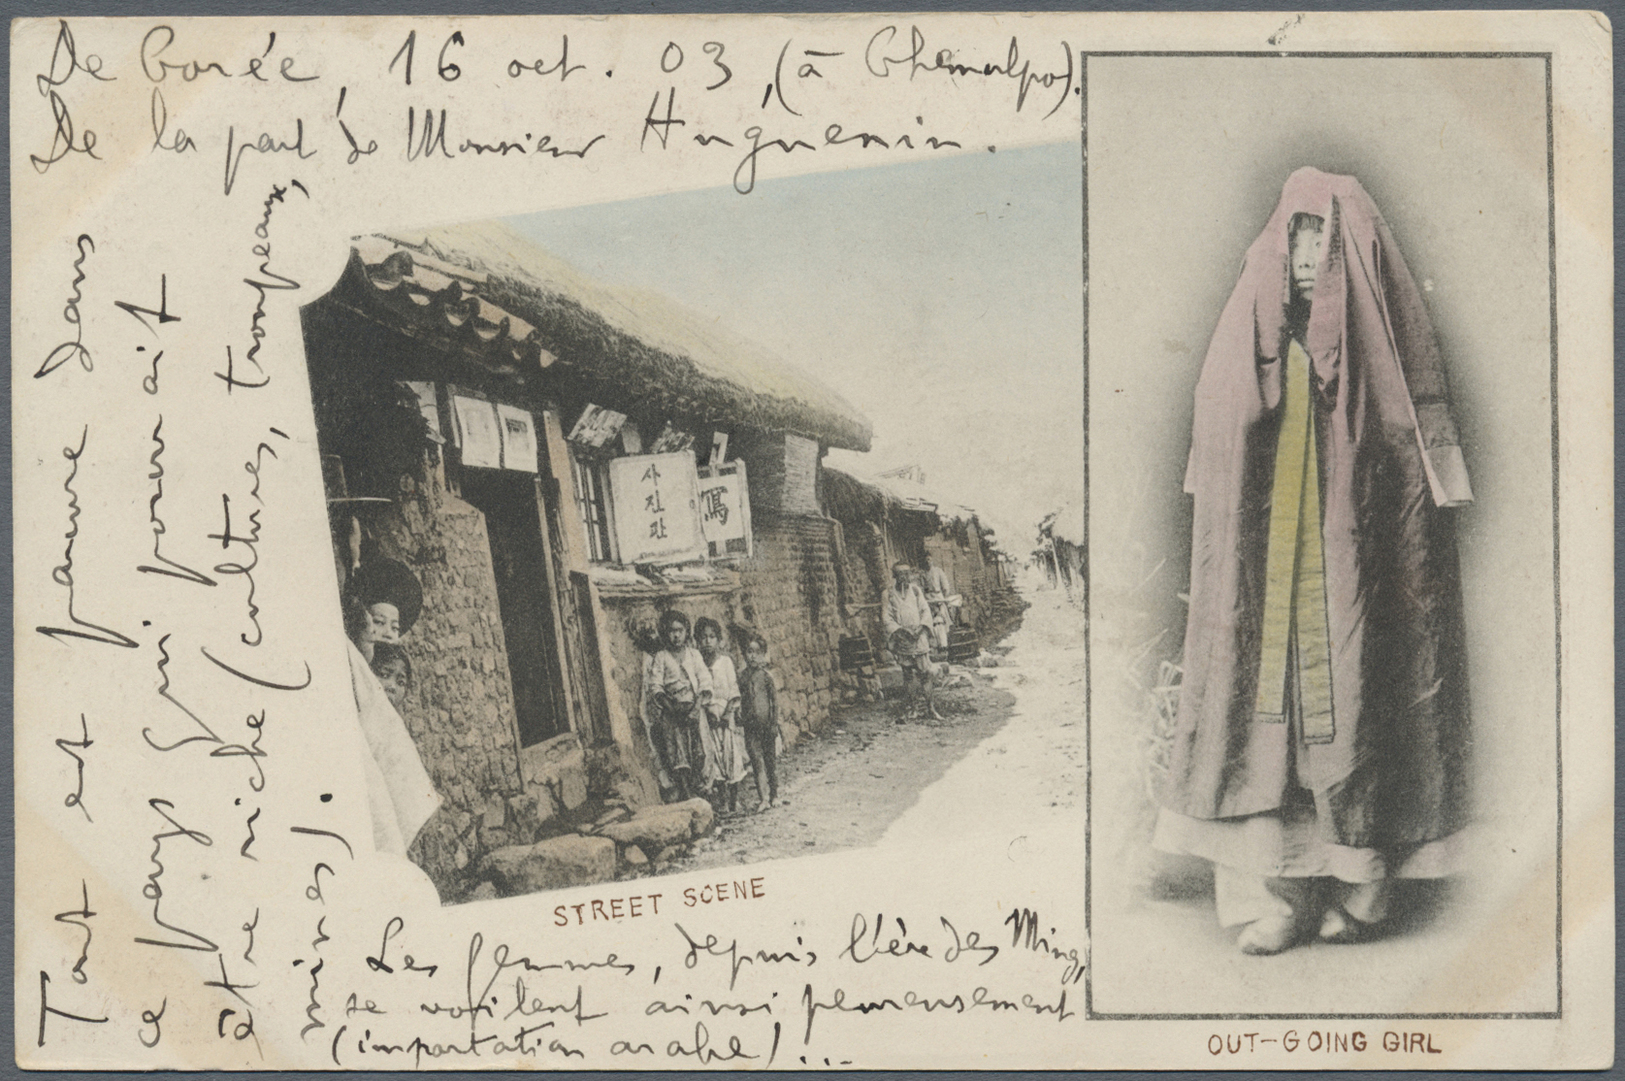 De Corée, 16 oct. 03, (à Chemulpo).
De la part de Monsieur Huguenin.
Tout est pauvre dans
ce pays qui pourrait
être riche (cultures, troupeaux,
mines).
사진관
寫
STREET SCENE
Les femmes, depuis l'ère des Ming,
se voilent ainsi peureusement
(importation arabe)...
OUT-GOING GIRL